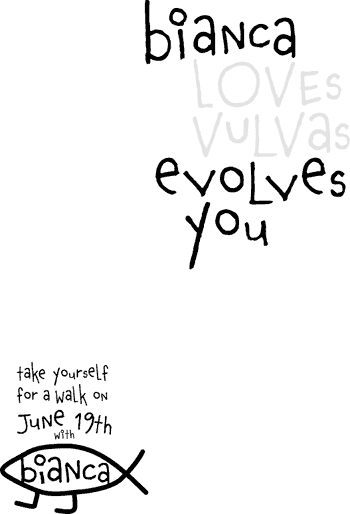 bianca
LOVES
VULVAS
evolves
you
take yourself
for a walk on
June 19th
with
bianca